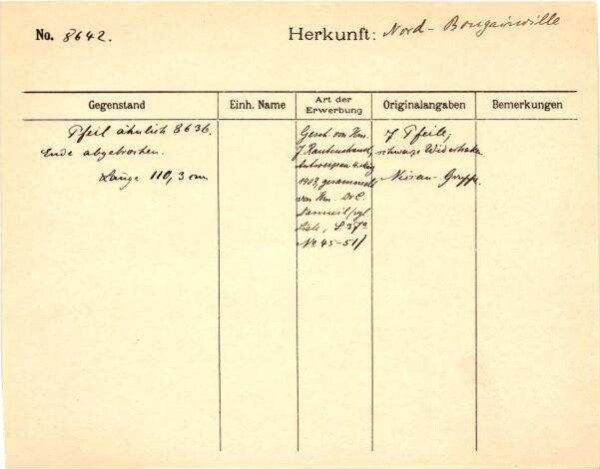 No. 8642.
Herkunft: Nord-Bougainville
Gegenstand
Einh. Name
Art der Erwerbung
Originalangaben
Bemerkungen
Pfeil ähnlich 8636.
Ende abgebrochen.
Länge 110,3 cm
Gesch. von Hrn.
J.
Antwerpen
1903, gesammelt
von Hrn. Dr C.
/vgl.
Liste, S 37a
No. 45-51/
7 Pfeile,
schwarze Widerhaken